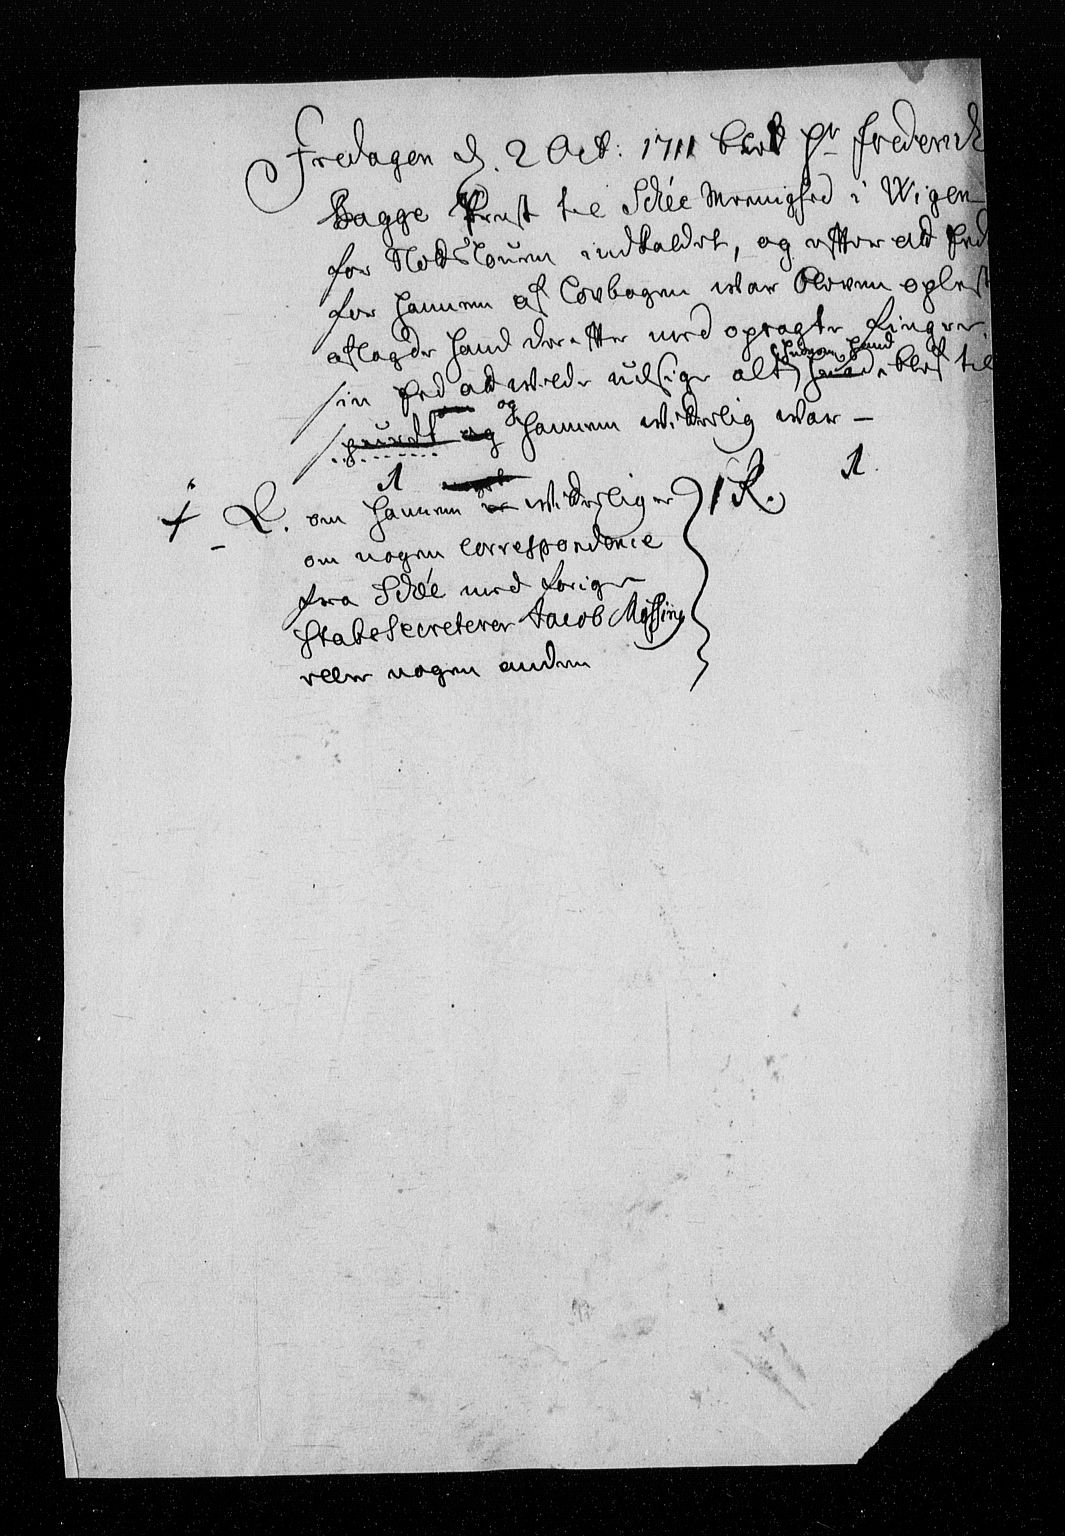 Fredagen d. 2 Oct: 1711 blef Hr Frederick
Bagge Præst til Schèe Meenighed i Wigen
for Slotslouen indkaldet, og efter at Eed
for hannem af Lovbogen war bleven oplest
aflagde hand derefter med opragte Finger
sin Eed at wilde udsige alt, hvorom hand blef til
spurdt og hannem witterlig war —
1 1.
Q. om hannem er witterlig er 1 R.
om nogen correspondence
fra Schèe med forige
Stats Secreterer Jacob
eller nogen anden